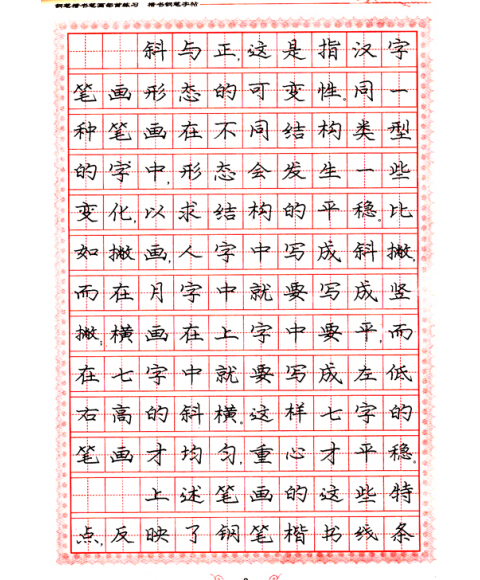 钢笔楷书笔画部首练习 楷书钢笔字帖
斜与正,这是指汉字
笔画形态的可变性。同一
种笔画在不同结构类型
的字中,形态会发生一些
变化,以求结构的平稳。比
如撇画,人字中写成斜撇,
而在月字中就要写成竖
撇;横画在上字中要平,而
在七字中就要写成左低
右高的斜横。这样七字的
笔画才均匀,重心才平稳。
上述笔画的这些特
点,反映了钢笔楷书线条